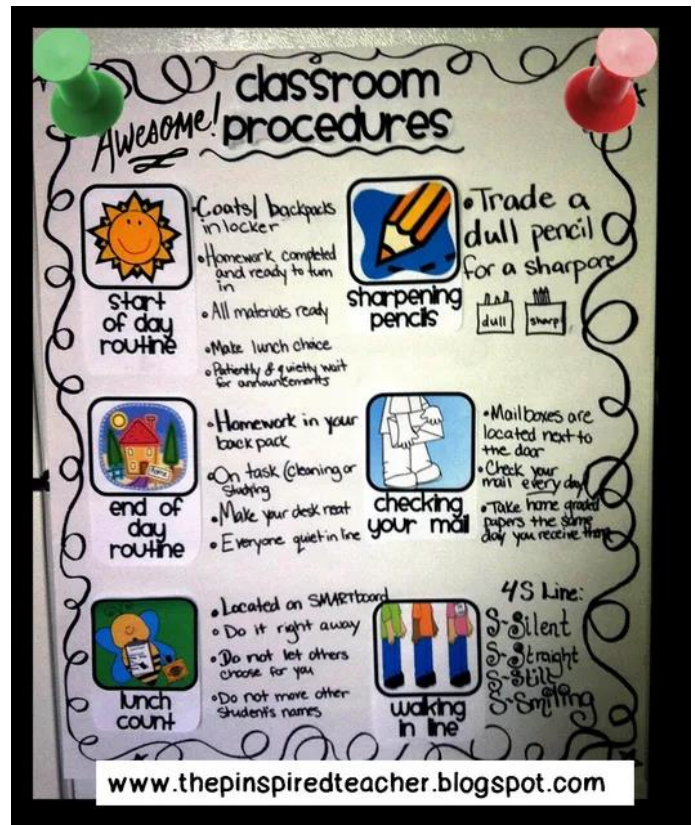 Awesome!
classroom
procedures
start
of day
routine
•Coats/ backpacks
in locker
•Homework completed
and ready to turn
in
•All materials ready
•Make lunch choice
•Patiently & quietly wait
for announcements
sharpening
pencils
•Trade a
dull pencil
for a sharp one
dull
sharp
end of
day
routine
•Homework in your
back pack
•On task (cleaning or
studying
•Make your desk neat
•Everyone quiet in line
checking
your mail
•Mailboxes are
located next to
the door
•Check your
mail every day
•Take home graded
papers the same
day you receive them
lunch
count
•Located on SMARTboard
•Do it right away
•Do not let others
choose for you
•Do not move other
student's names
walking
in line
4S Line:
S-Silent
S-Straight
S-Still
S-Smiling
www.thepinspiredteacher.blogspot.com